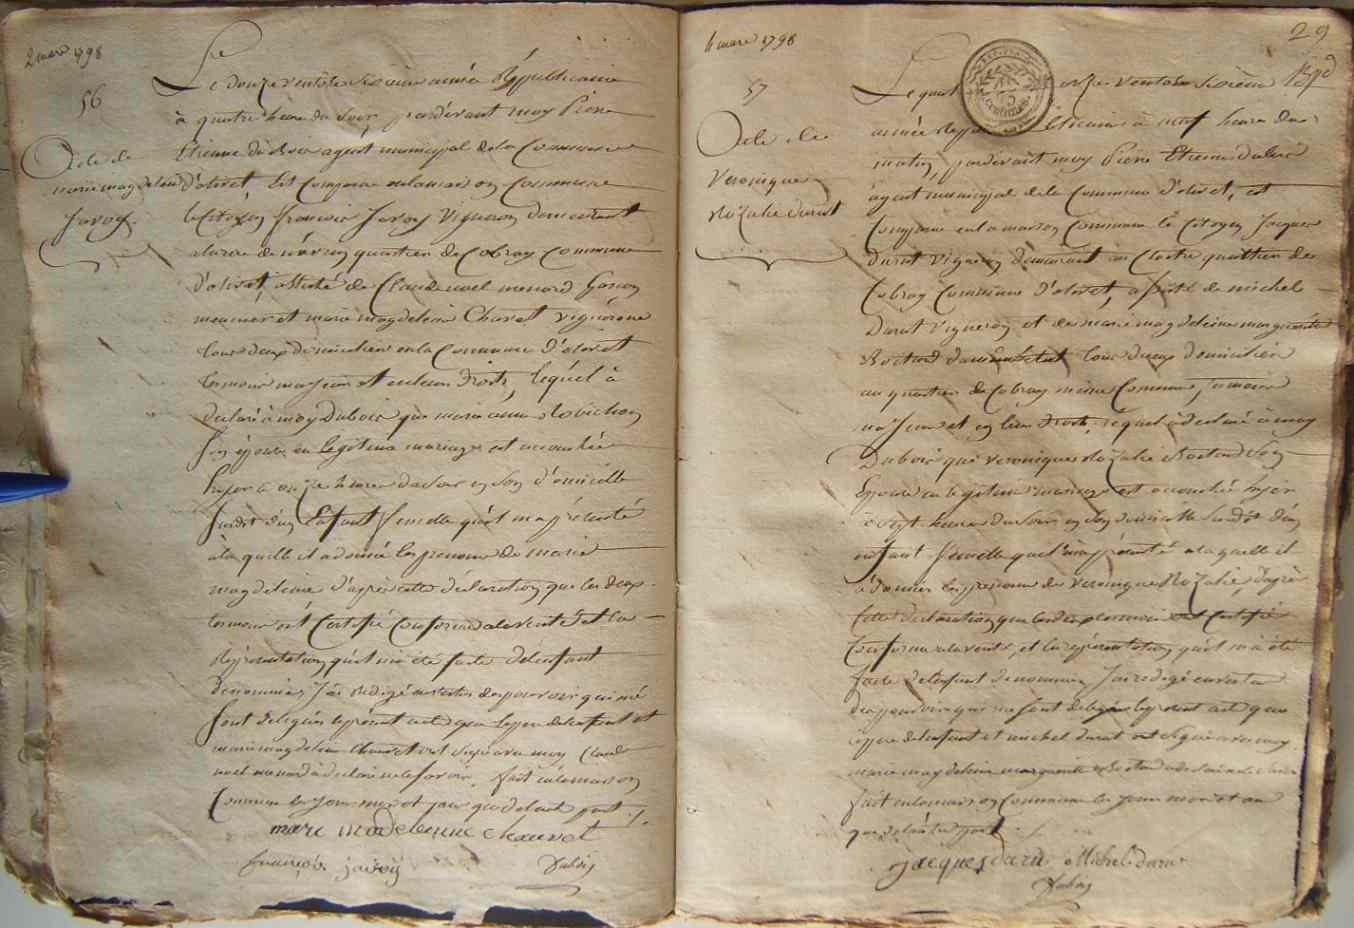 2 mars 1798
56
Acte de
marie magdeleine
Javoy
Le douze ventose sixieme année Républicaine
à quatre heure du Soir, pardevant moy Pierre
Etienne duBois agent municipal de la Commune
d'olivet, Est Comparue en la maison Commune
le Citoyen francois Javoy Vigneron demeurant
a la rue de quartier de Cobray Commune
d'olivet, assisté de Claude noel menard Garcon
meunier et marie magdeleine Chavet vigneronne
tous deux domiciliés en la Commune d'olivet
les majeurs et en leurs droits, lequel à
declaré à moy Dubois que marie anne Robichon
Son épouse en legitime mariage est accouchée
hyer à onze heures du Soir en Son d'omicille
Susdit d'un Enfant femelle qu'il m'a présenté
à la quelle il a donné les prenoms de marie
magdeleine d'après cette déclaration que les deux
témoins ont Certifié Conforme a la verité et la
Représentation qu'il m'a été faite de lenfant
denommée, J'ai Redigé en vertu des pouvoirs qui me
Sont delegués le present acte que le pere de lenfant et
marie magdeleine Chavet ont Signé avec moy Claude
noel menard à declaré ne le savoir, fait en la maison
Commune les Jour mois et an que de lautre part ./.
marie madeleinne chauvet
francois javoy
Dubois
4 mars 1798
57
Acte de
Veronique
Rozalie durut
29
Le quatorze ventose Sixieme
année Republicaine à neuf heure du
matin, pardevant moy Pierre Etienne dubois
agent municipal de la Commune d'olivet, est
Comparue en la maison Commune le Citoyen Jacques
durut Vigneron demeurant au Cloitre quartier de
Cobray Commune d'olivet, assisté de michel
Durut Vigneron et de marie magdeleine marguerite
tous deux domiciliés
au quartier de Cobray meme Commune,
majeurs et en leurs droits, lequel à declaré à moy
Dubois que veronique Rozalie Son
Epouse en legitime mariage est accouchée hyer
à Sept heures du Soir en Son domicille Susdit d'un
enfant femelle qu'il m'a présenté a laquelle il
à donné les prenoms de Veronique Rozalie, d'après
cette declaration que les deux témoins ont Certifié
Conforme a la verité, et la représentation qu'il m'a été
faite de lenfant denommée J'ai redigé en vertu
des pouvoirs qui me sont delegués le present acte que
le pere de lenfant et michel durut ont Signé avec moy
marie magdeleine marguerite a declaré ne le savoir
fait en la maison Commune les Jour mois et an
que de lautre part
jacques daru Michel daru
Dubois